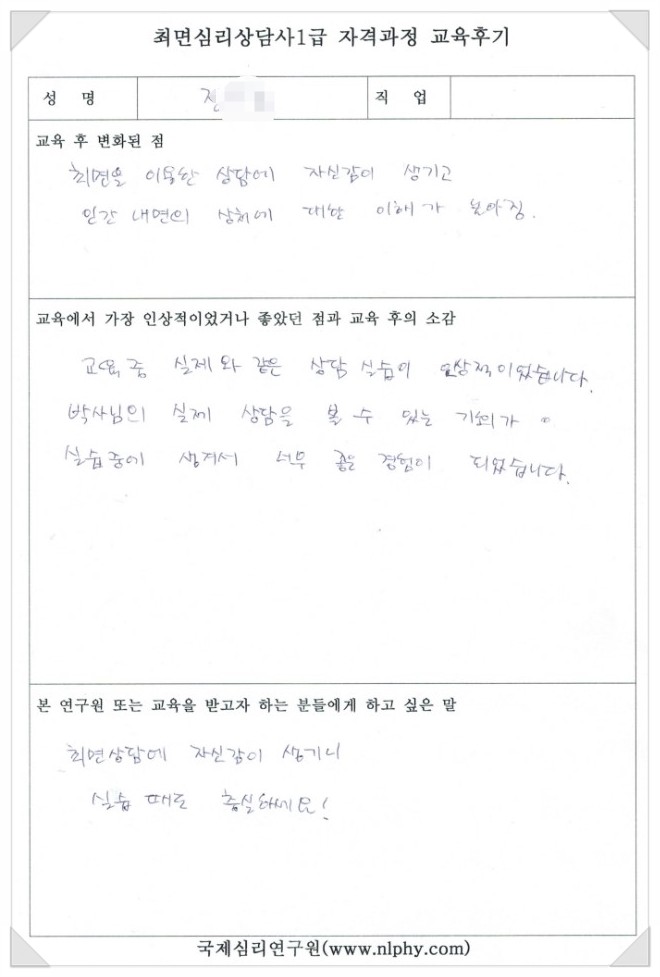 최면심리상담사1급 자격과정 교육후기
성 명 전
직 업
교육 후 변화된 점
최면을 이용한 상담에 자신감이 생기고
인간 내면의 상처에 대한 이해가 높아짐.
교육에서 가장 인상적이었거나 좋았던 점과 교육 후의 소감
교육 중 실제와 같은 상담 실습이 인상적이었습니다.
박사님의 실제 상담을 볼 수 있는 기회가
실습중에 생겨서 너무 좋은 경험이 되었습니다.
본 연구원 또는 교육을 받고자 하는 분들에게 하고 싶은 말
최면상담에 자신감이 생기니
실습 때도 충실하세요!
국제심리연구원(www.nlphy.com)